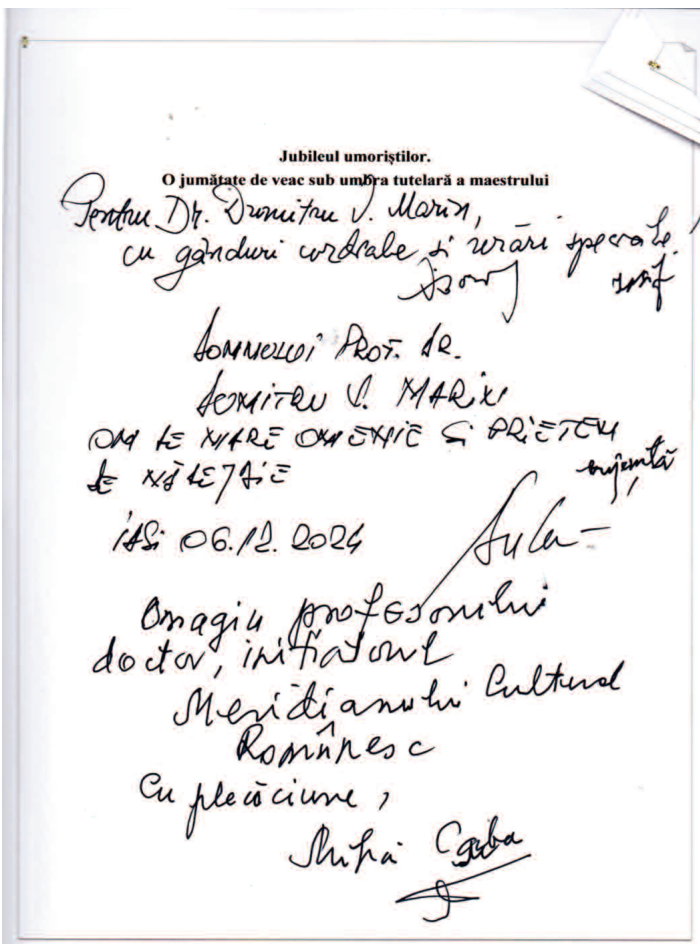 Jubileul umoriștilor.
O jumătate de veac sub umbra tutelară a maestrului
Pentru Dr. Dumitru V. Marin,
cu gânduri cordiale și urări speciale!
DOMNULUI PROF. DR.
DUMITRU V. MARIN
OM DE MARE OMENIE ȘI PRIETEN
DE NĂDEJDE
IAȘI 06.12.2024
Omagiu profesorului
doctor, inițiatorul
Meridianului Cultural
Românesc
Cu plecăciune,
Mihai